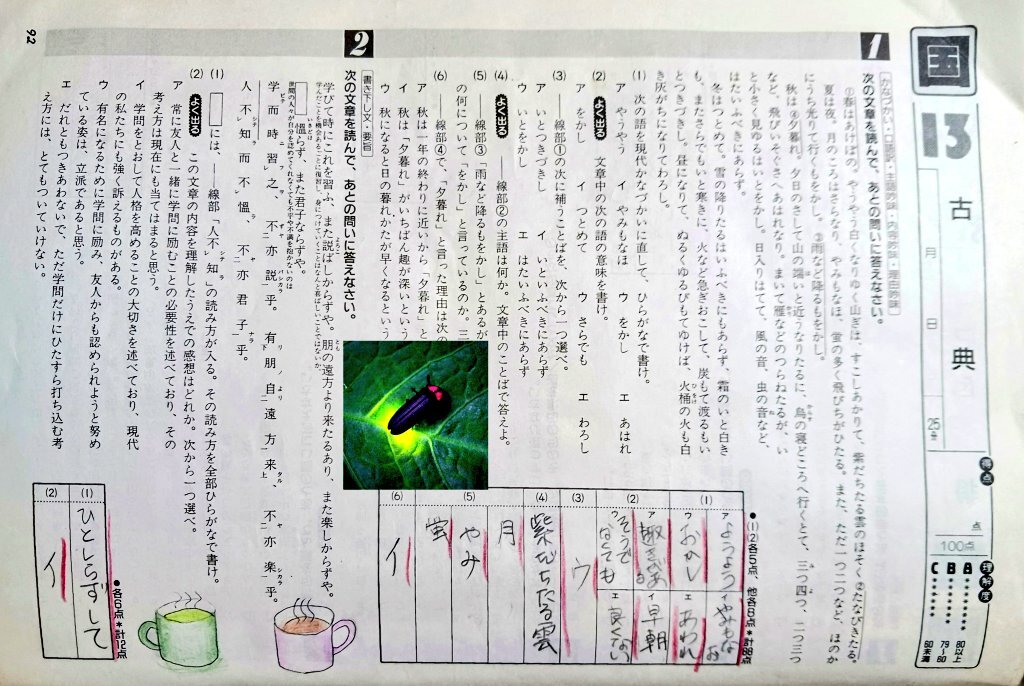 国
13
古典
月 日
25分
得点
点
100点
理解度
A 80以上
B 79~60
C 60未満
1
かなづかい・口語訳・主語吟味・内容吟味・理由吟味
次の文章を読んで、あとの問いに答えなさい。
①春はあけぼの。やうやう白くなりゆく山ぎは、すこしあかりて、紫だちたる雲のほそく②たなびきたる。
夏は夜。月のころはさらなり、やみもなほ、蛍の多く飛びちがひたる。また、ただ一つ二つなど、ほのか
にうち光りて行くもをかし。③雨など降るもをかし。
秋は④夕暮れ。夕日のさして山の端いと近うなりたるに、烏の寝どころへ行くとて、三つ四つ、二つ三つ
など、飛びいそぐさへあはれなり。まいて雁などのつらねたるが、い
と小さく見ゆるはいとをかし。日入りはてて、風の音、虫の音など、
はたいふべきにあらず。
冬はつとめて。雪の降りたるはいふべきにもあらず、霜のいと白き
も、またさらでもいと寒きに、火など急ぎおこして、炭もて渡るもい
とつきづきし。昼になりて、ぬるくゆるびもてゆけば、火桶の火も白
き灰がちになりてわろし。
(1) 次の語を現代かなづかいに直して、ひらがなで書け。
ア やうやう イ やみもなほ ウ をかし エ あはれ
(2) よく出る 文章中の次の語の意味を書け。
ア をかし イ つとめて ウ さらでも エ わろし
(3) ――線部①の次に補うことばを、次から一つ選べ。
ア いとつきづきし イ いといふべきにあらず
ウ いとをかし エ はたいふべきにあらず
(4) よく出る ――線部②の主語は何か。文章中のことばで答えよ。
(5) ――線部③「雨など降るもをかし」とあるが
の何について「をかし」と言っているのか。三
(6) ――線部④で、「夕暮れ」と言った理由は次の
ア 秋は一年の終わりに近いから「夕暮れ」と
イ 秋は「夕暮れ」がいちばん趣が深いという
ウ 秋になると日の暮れかたが早くなるという
●(1)(2)各5点、他各6点*計88点
(1)
ア ようよう
イ やみもなお
ウ おかし
エ あわれ
(2)
ア 趣がある
イ 早朝
ウ そうでなくても
エ 良くない
(3)
ウ
(4)
紫だちたる雲
(5)
月
やみ
蛍
(6)
イ
2
書き下し文・要旨
次の文章を読んで、あとの問いに答えなさい。
学びて時にこれを習ふ、また説ばしからずや。朋の遠方より来たるあり、また楽しからずや。
学んだことを機会あるごとに復習し、身につけていくことはなんと喜ばしいことではないか。
慍らず、また君子ならずや。
世間の人々が自分を認めてくれなくても不平や不満を抱かないのは
学而時習レ之、不二亦説一乎。有下朋自二遠方一来上、不二亦楽一乎。
人不レ知而不レ慍、不二亦君子一乎。
(1) には、――線部「人不レ知」の読み方が入る。その読み方を全部ひらがなで書け。
(2) よく出る この文章の内容を理解したうえでの感想はどれか。次から一つ選べ。
ア 常に友人と一緒に学問に励むことの必要性を述べており、その
考え方は現在にも当てはまると思う。
イ 学問をとおして人格を高めることの大切さを述べており、現代
の私たちにも強く訴えるものがある。
ウ 有名になるために学問に励み、友人からも認められようと努め
ている姿は、立派であると思う。
エ だれともつきあわないで、ただ学問だけにひたすら打ち込む考
え方には、とてもついていけない。
●各6点*計12点
(1)
ひとしらずして
(2)
イ
92